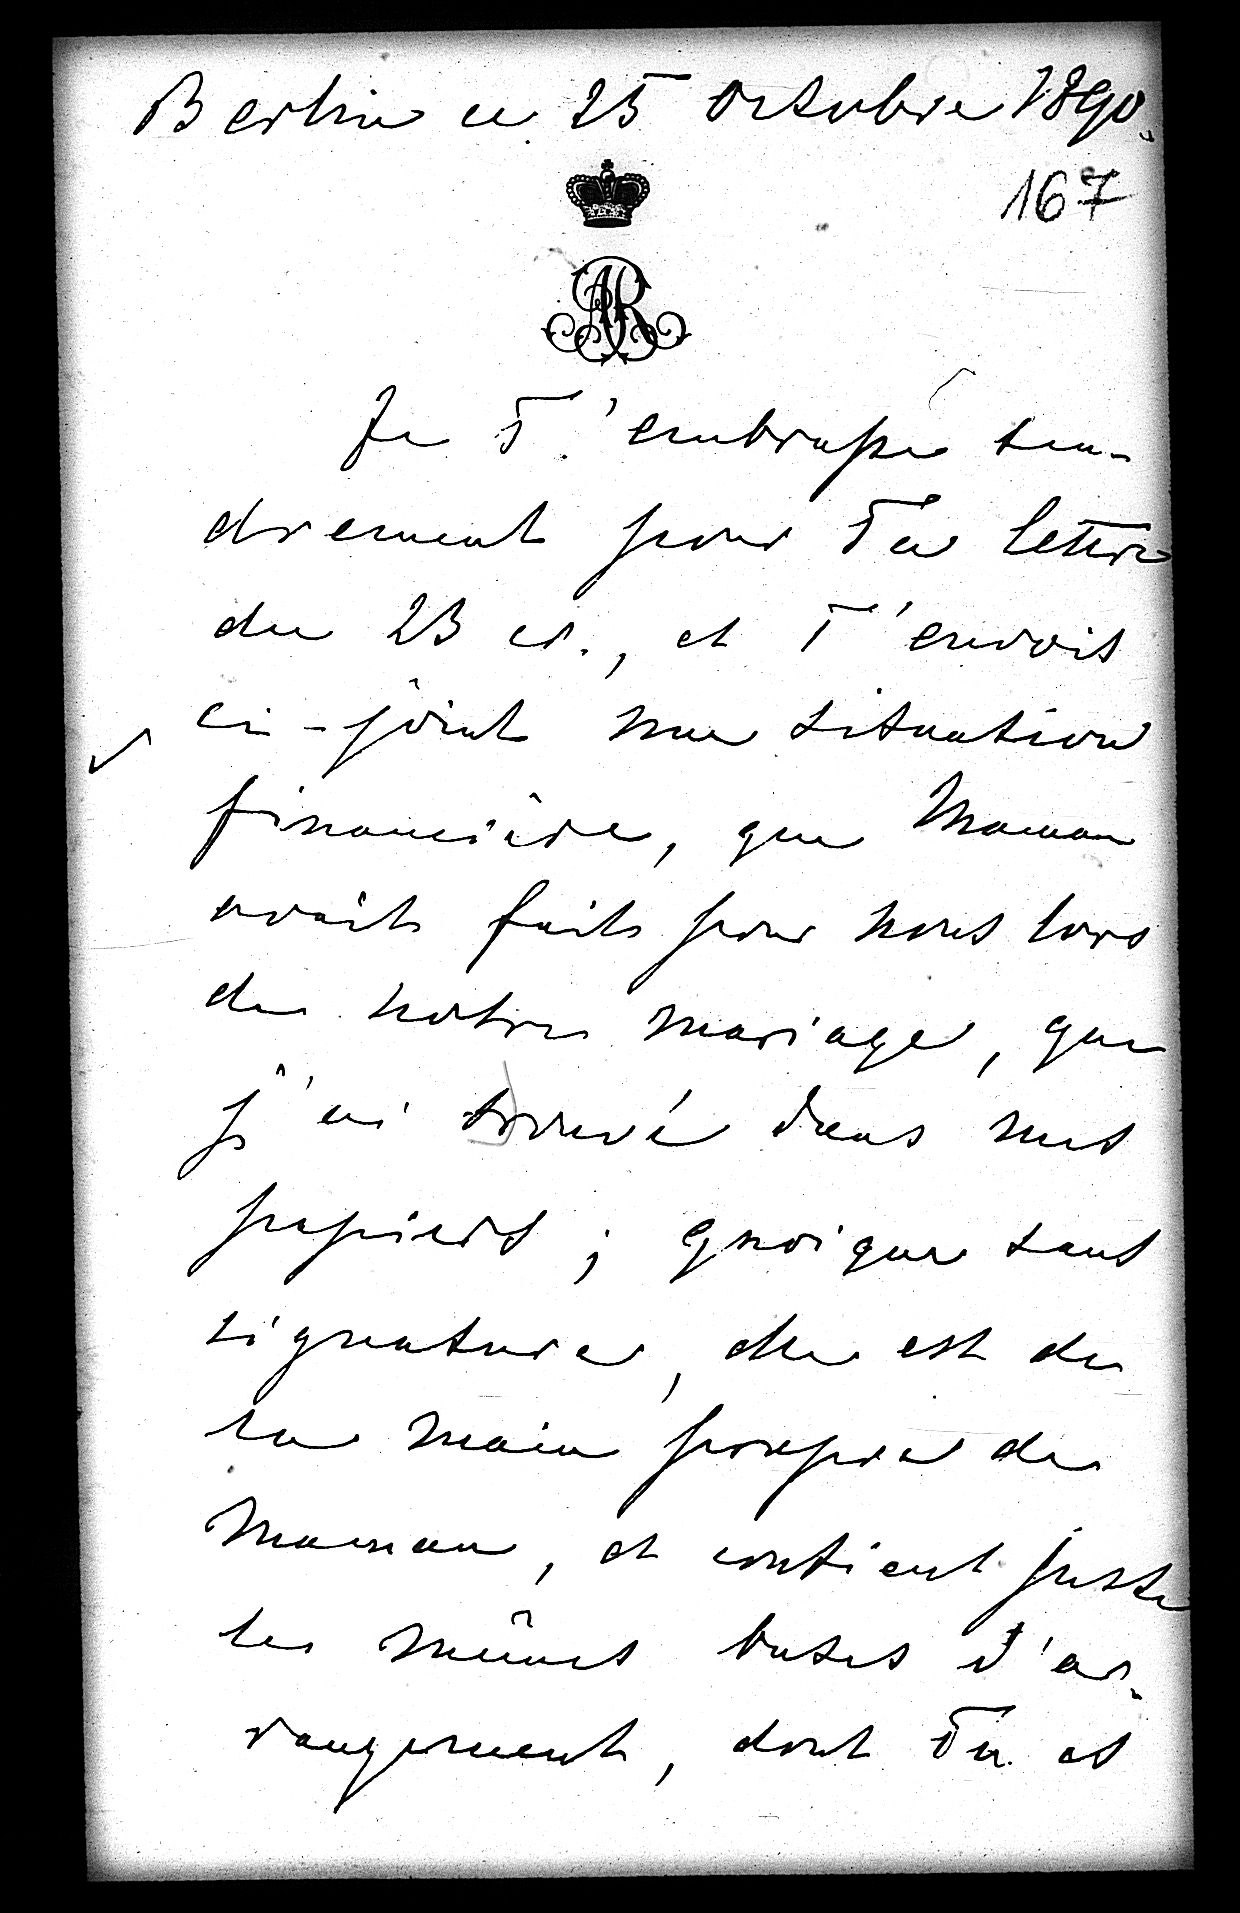 Berlin ce 25 octobre 1890.
167
AR
Je T'embrasse ten-
drement pour Ta lettre
du 23 cr., et T'envois
ci-joint une situation
financière, que Maman
avait fait pour nous lors
de notre mariage, que
j'ai trouvé dans mes
papiers; quoique sans
signature, elle est de
la main propre de
Maman, et contient juste
les mêmes bases d'ar-
rangement, dont Tu as